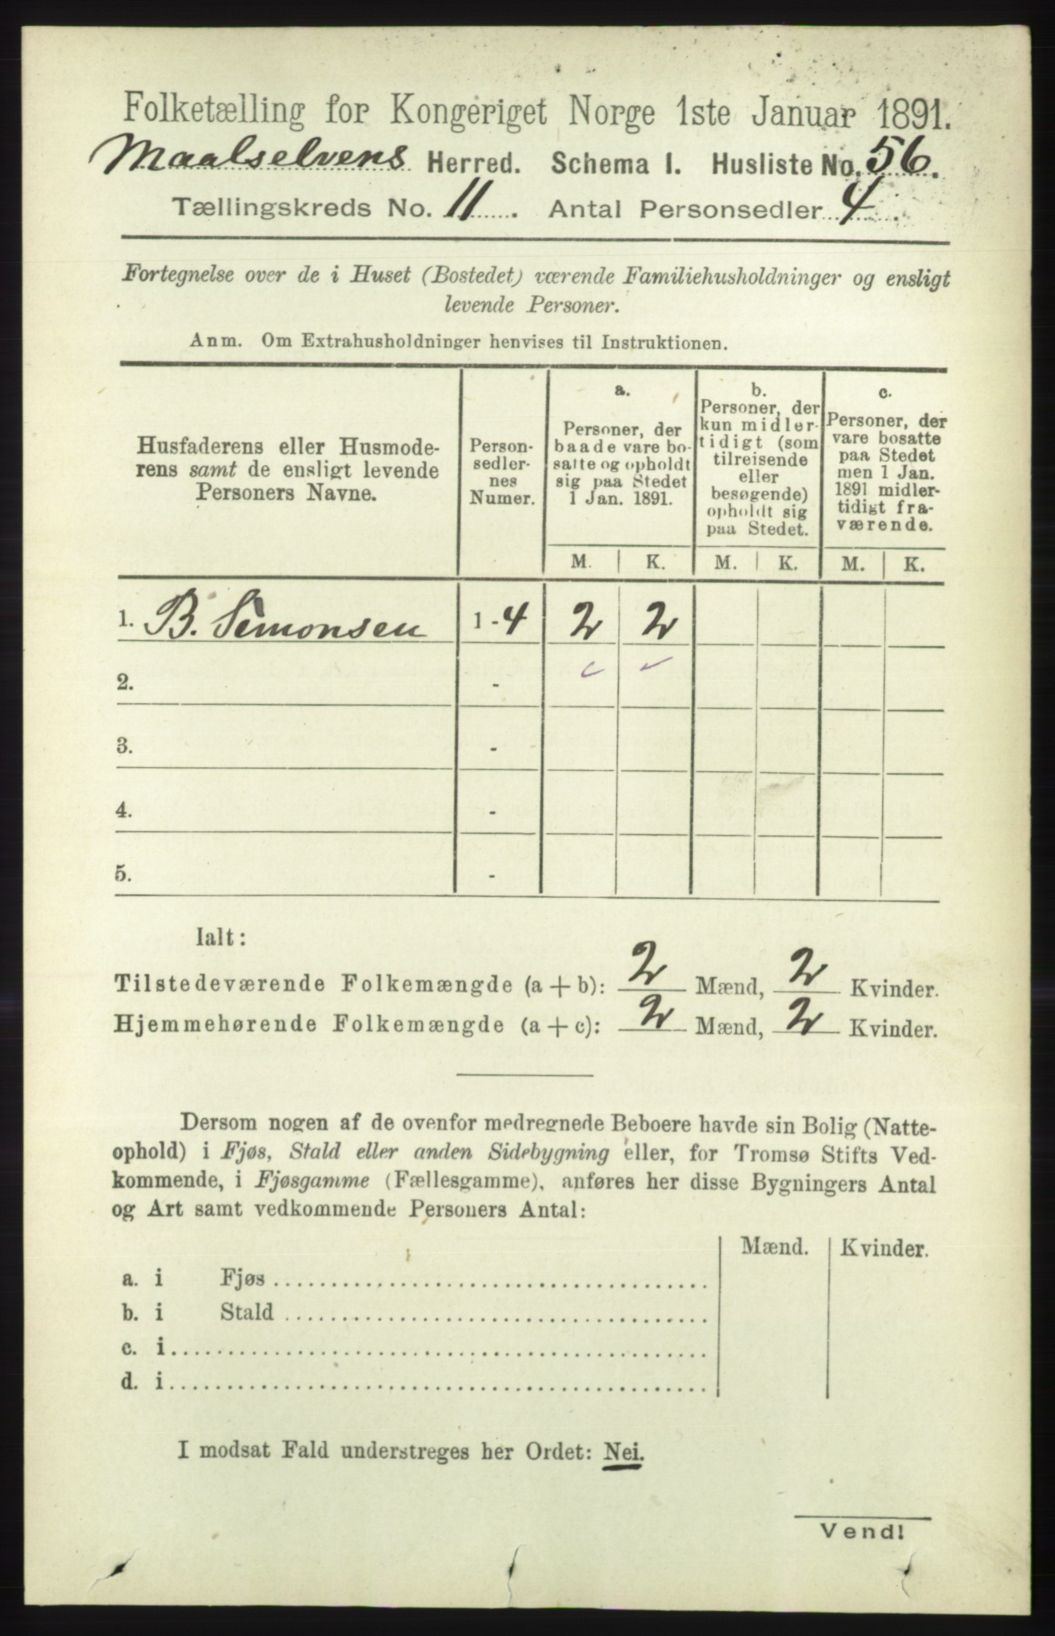 Folketælling for Kongeriget Norge 1ste Januar 1891.
Maalselvens Herred. Schema I. Husliste No. 56.
Tællingskreds No. 11. Antal Personsedler 4.
Fortegnelse over de i Huset (Bostedet) værende Familiehusholdninger og ensligt
levende Personer.
Anm. Om Extrahusholdninger henvises til Instruktionen.
Husfaderens eller Husmode-
rens samt de ensligt levende
Personers Navne.
Person-
sedler-
nes
Numer.
a.
Personer, der
baade vare bo-
satte og opholdt
sig paa Stedet
1 Jan. 1891.
b.
Personer, der
kun midler-
tidigt (som
tilreisende
eller
besøgende)
opholdt sig
paa Stedet.
c.
Personer, der
vare bosatte
paa Stedet
men 1 Jan.
1891 midler-
tidigt fra-
værende.
M. K. M. K. M. K.
1. B. Simonsen 1-4 2 2
2. -
3. -
4. -
5. -
Ialt:
Tilstedeværende Folkemængde (a + b): 2 Mænd, 2 Kvinder.
Hjemmehørende Folkemængde (a + c): 2 Mænd, 2 Kvinder.
Dersom nogen af de ovenfor medregnede Beboere havde sin Bolig (Natte-
ophold) i Fjøs, Stald eller anden Sidebygning eller, for Tromsø Stifts Ved-
kommende, i Fjøsgamme (Fællesgamme), anføres her disse Bygningers Antal
og Art samt vedkommende Personers Antal:
Mænd. Kvinder.
a. i Fjøs
b. i Stald
c. i
d. i
I modsat Fald understreges her Ordet: Nei.
Vend!